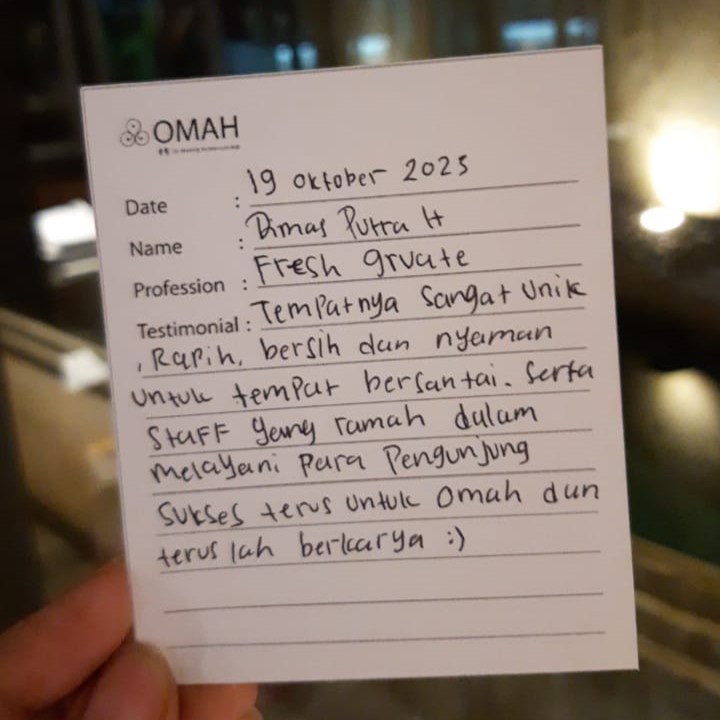 OMAH
Date : 19 Oktober 2025
Name : Dimas Putra H
Profession : Fresh gruate
Testimonial : Tempatnya Sangat Unik
, Rapih, bersih dan nyaman
Untuk tempat bersantai. Serta
Staff yang ramah dalam
Melayani Para Pengunjung
Sukses terus Untuk Omah dan
terus lah berkarya :)